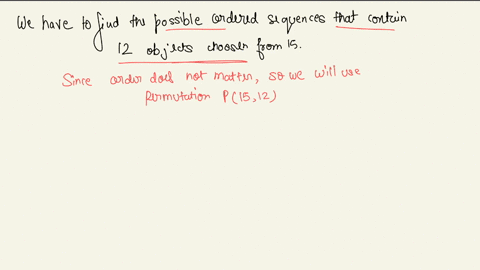 We have to find the possible ordered sequences that contain
12 objects choosen from 15.
Since order does not matter, so we will use
permutation P(15,12)